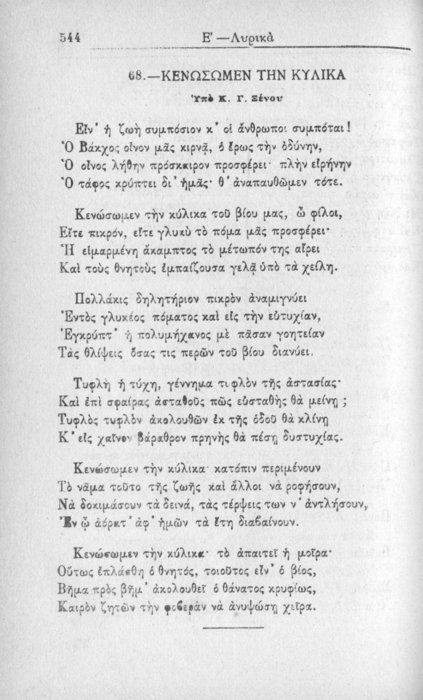 544
Ε' —Λυρικὰ
68.—ΚΕΝΩΣΩΜΕΝ ΤΗΝ ΚΥΛΙΚΑ
Ὑπὸ Κ. Γ. Ξένου
Εἶν' ἡ ζωὴ συμπόσιον κ' οἱ ἄνθρωποι συμπόται!
Ὁ Βάκχος οἶνον μᾶς κιρνᾷ, ὁ ἔρως τὴν ὀδύνην,
Ὁ οἶνος λήθην πρόσκαιρον προσφέρει· πλὴν εἰρήνην
Ὁ τάφος κρύπτει δι' ἡμᾶς· θ' ἀναπαυθῶμεν τότε.
Κενώσωμεν τὴν κύλικα τοῦ βίου μας, ὦ φίλοι,
Εἴτε πικρόν, εἴτε γλυκὺ τὸ πόμα μᾶς προσφέρει·
Ἡ εἱμαρμένη ἄκαμπτος τὸ μέτωπόν της αἴρει
Καὶ τοὺς θνητοὺς ἐμπαίζουσα γελᾷ ὑπὸ τὰ χείλη.
Πολλάκις δηλητήριον πικρὸν ἀναμιγνύει
Ἐντὸς γλυκέος πόματος καὶ εἰς τὴν εὐτυχίαν,
Ἐγκρύπτ' ἡ πολυμήχανος μὲ πᾶσαν γοητείαν
Τὰς θλίψεις ὅσας τις περῶν τοῦ βίου διανύει.
Τυφλὴ ἡ τύχη, γέννημα τυφλὸν τῆς ἀστασίας·
Καὶ ἐπὶ σφαίρας ἀσταθοῦς πῶς εὐσταθὴς θὰ μείνῃ;
Τυφλὸς τυφλὸν ἀκολουθῶν ἐκ τῆς ὁδοῦ θὰ κλίνῃ
Κ' εἰς χαῖνον βάραθρον πρηνὴς θὰ πέσῃ δυστυχίας.
Κενώσωμεν τὴν κύλικα· κατόπιν περιμένουν
Τὸ νᾶμα τοῦτο τῆς ζωῆς καὶ ἄλλοι νὰ ροφήσουν,
Νὰ δοκιμάσουν τὰ δεινά, τὰς τέρψεις των ν' ἀντλήσουν,
Ἐν ᾧ ἀόρατ' ἀφ' ἡμῶν τὰ ἔτη διαβαίνουν.
Κενώσωμεν τὴν κύλικα· τὸ ἀπαιτεῖ ἡ μοῖρα·
Οὕτως ἐπλάσθη ὁ θνητός, τοιοῦτος εἶν' ὁ βίος,
Βῆμα πρὸς βῆμ' ἀκολουθεῖ ὁ θάνατος κρυφίως,
Καιρὸν ζητῶν τὴν φοβερὰν νὰ ἀνυψώσῃ χεῖρα.